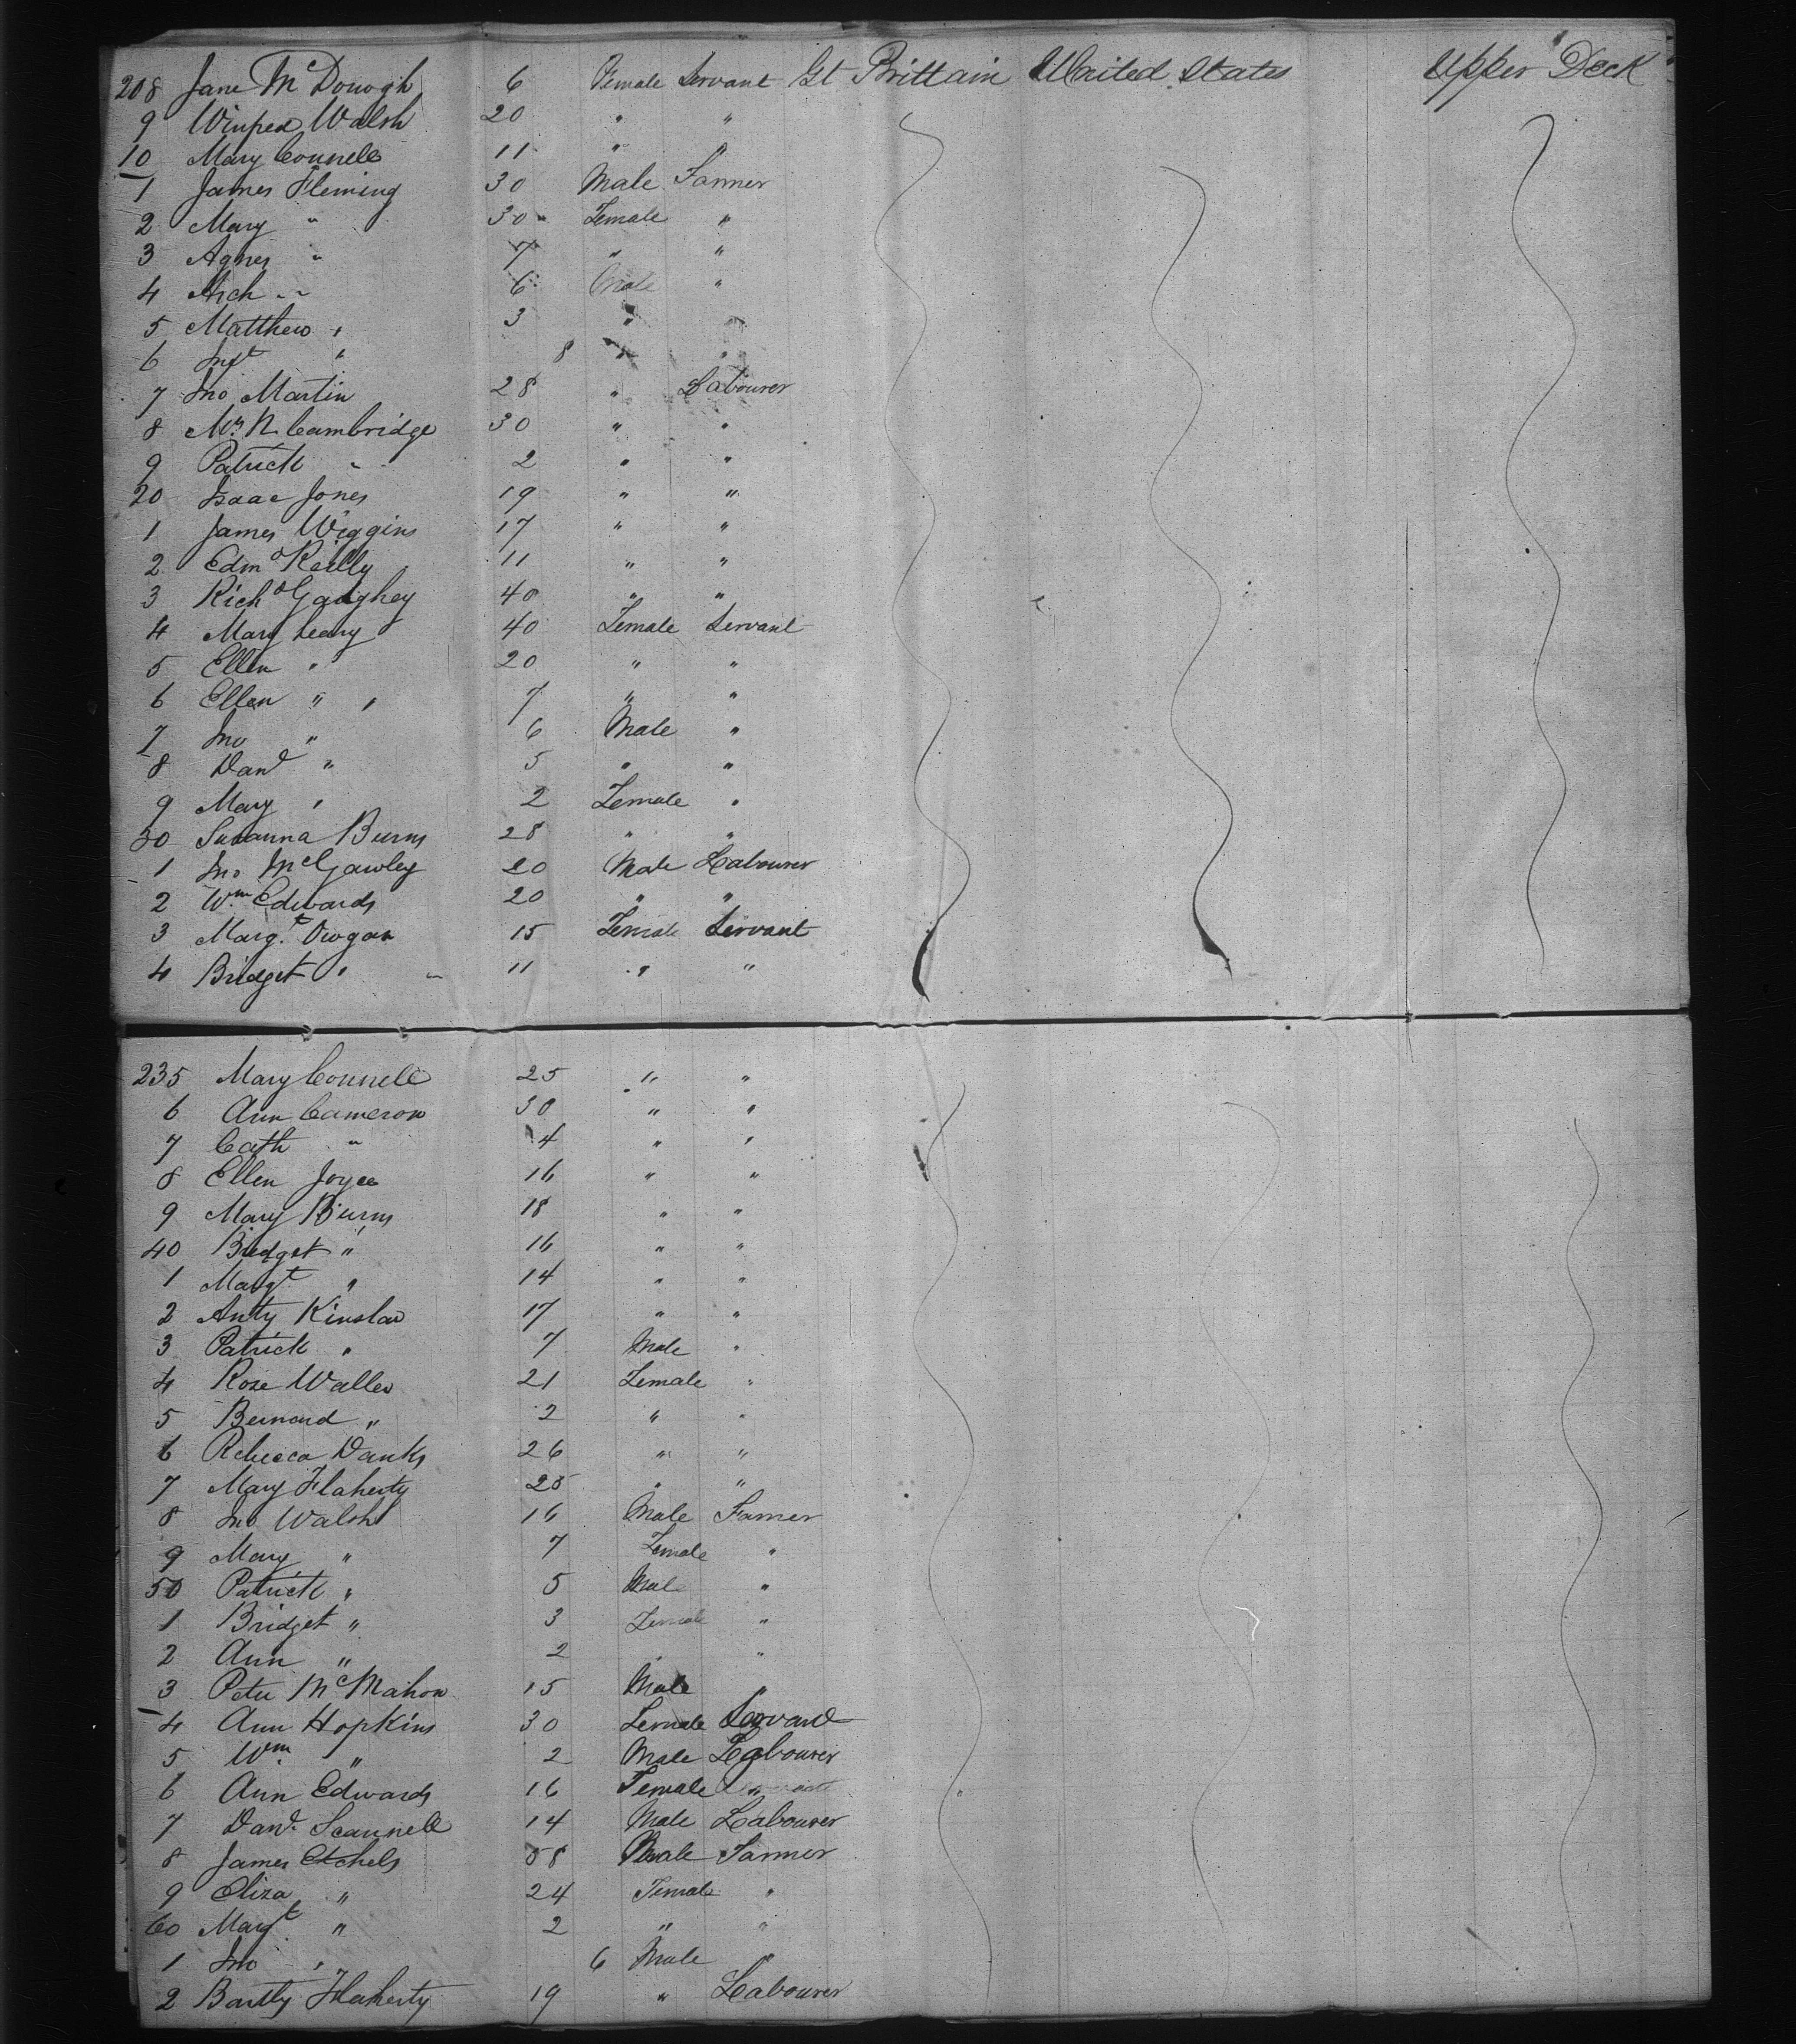 208 Jane McDonogh 6 Female Servant Gt Brittain United States Upper Deck
9 Winfred Walsh 20 " "
10 Mary Connell 11 " "
1 James Fleming 30 Male Farmer
2 Mary " 30 Female "
3 Agnes " 7 " "
4 Arch " 6 Male "
5 Matthew " 3 " "
6 Inft " 8 " "
7 Jno Martin 28 " Labourer
8 Mr N Cambridge 30 " "
9 Patrick " 2 " "
20 Isaac Jones 19 " "
1 James Wiggins 17 " "
2 Edmd Reilly 11 " "
3 Richd Gaughey 40 " "
4 Mary Leary 40 Female Servant
5 Ellen " 20 " "
6 Ellen " " 7 " "
7 Jno " 6 Male "
8 Danl " 5 " "
9 Mary " 2 Female "
30 Susanna Burns 28 " "
1 Jno McGawley 20 Male Labourer
2 Wm Edwards 20 " "
3 Margt Owgan 15 Female Servant
4 Bridget " 11 " "
235 Mary Connell 25 " "
6 Ann Cameron 30 " "
7 Cath " 4 " "
8 Ellen Joyce 16 " "
9 Mary Burns 18 " "
40 Bridget " 16 " "
1 Margt " 14 " "
2 Anty Kinslaw 17 " "
3 Patrick " 7 Male "
4 Rose Waller 21 Female "
5 Bernard " 2 " "
6 Rebecca Danks 26 " "
7 Mary Flaherty 25 " "
8 Jno Walsh 16 Male Farmer
9 Mary " 7 Female "
50 Patrick " 5 Male "
1 Bridget " 3 Female "
2 Ann " 2 " "
3 Peter McMahon 15 Male "
4 Ann Hopkins 30 Female Servant
5 Wm " 2 Male Labourer
6 Ann Edwards 16 Female "
7 Danl Scannell 14 Male Labourer
8 James Etchels 58 Male Farmer
9 Eliza " 24 Female "
60 Margt " 2 " "
1 Jno " 6 Male "
2 Bartly Flaherty 19 " Labourer